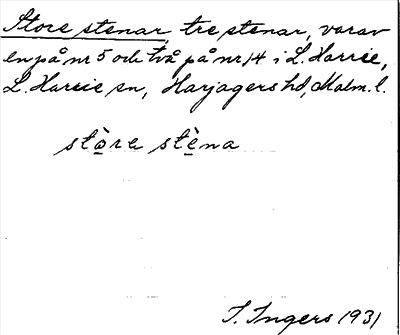 Store stenar, tre stenar, varav
en på nr 5 och två på nr 14 i L. Harrie,
L. Harrie sn, Harjagers hd, Malm. l.
stòra stèna
I. Ingers 1931